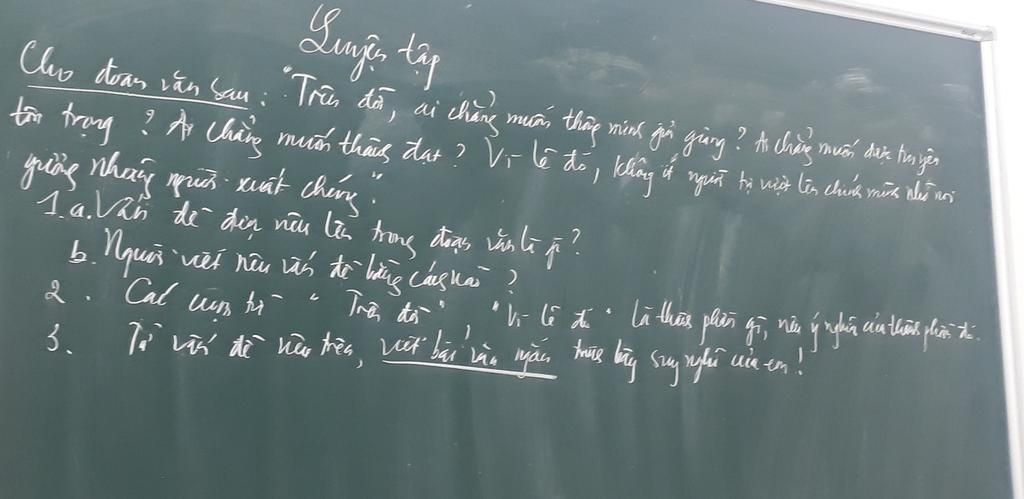 Luyện tập
Cho đoạn văn sau: "Trên đời, ai chẳng muốn thông minh giỏi giang? Ai chẳng muốn được tin yêu
tôn trọng? Ai chẳng muốn thành đạt? Vì lẽ đó, không ít người tự vượt lên chính mình nhờ noi
gương những người xuất chúng".
1. a. Vấn đề được nêu lên trong đoạn văn là gì?
b. Người viết nêu vấn đề bằng cách nào?
2. Các cụm từ "Trên đời", "Vì lẽ đó" là thành phần gì, nêu ý nghĩa của thành phần đó.
3. Từ vấn đề nêu trên, viết bài văn ngắn trình bày suy nghĩ của em!